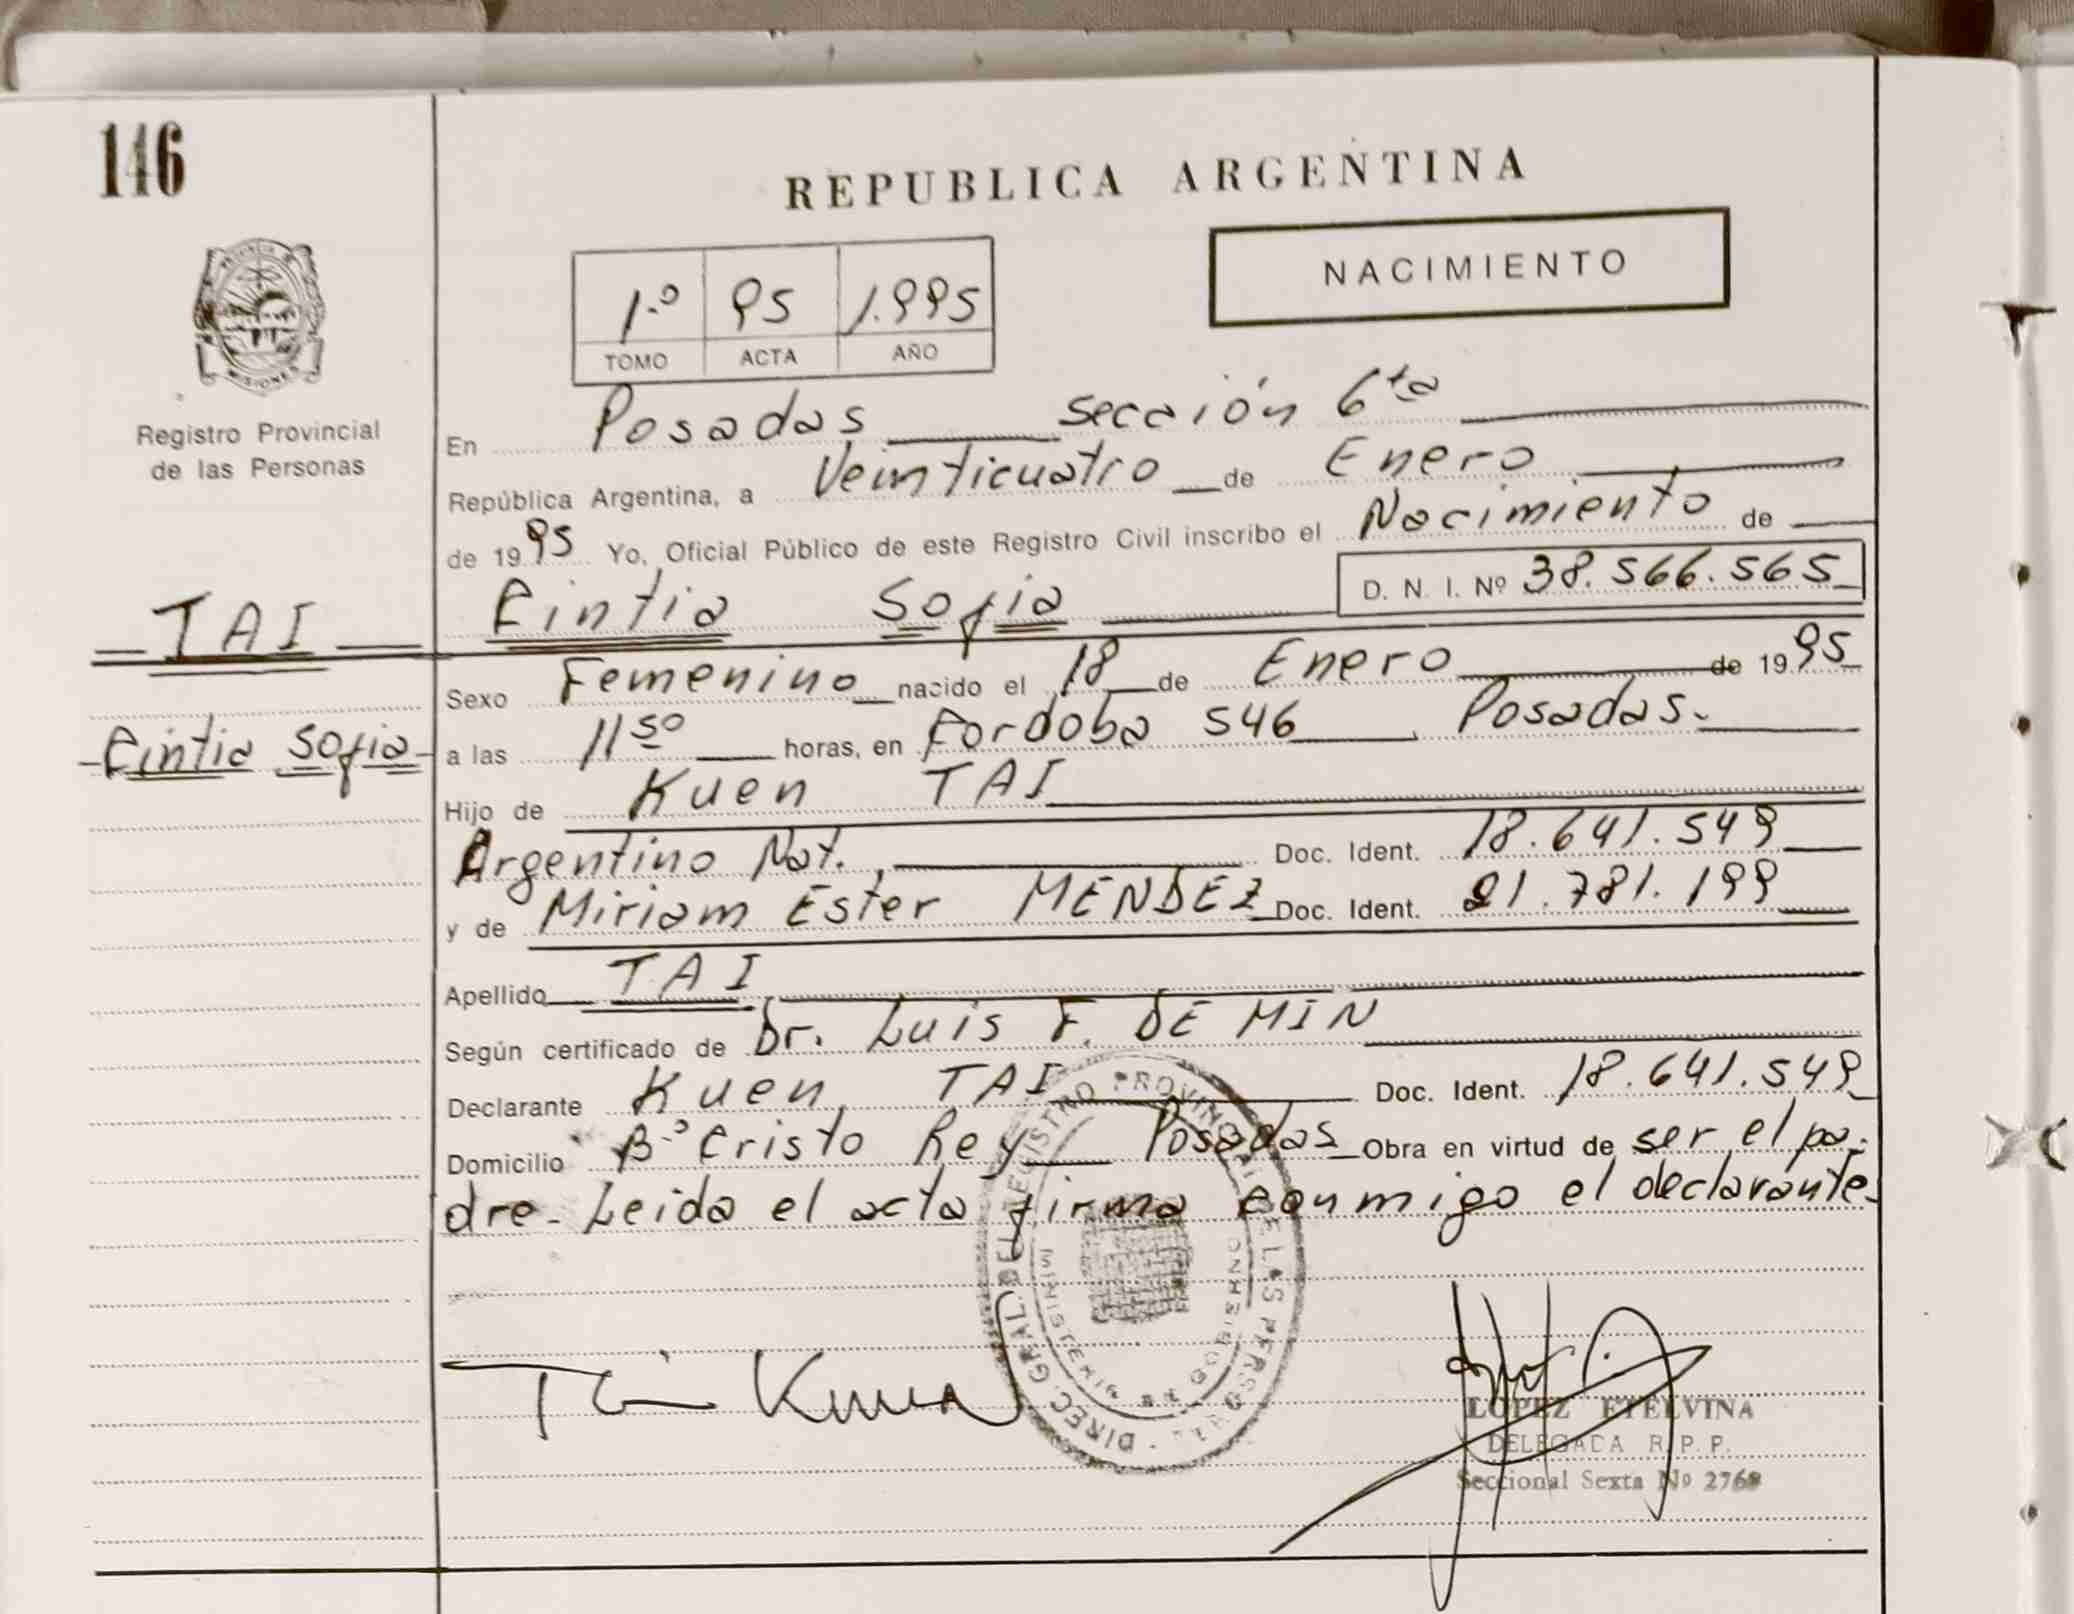 146
REPUBLICA ARGENTINA
NACIMIENTO
1.º 95 1.995
TOMO ACTA AÑO
PROVINCIA DE
MISIONES
Registro Provincial
de las Personas
TAI
Cintia Sofia
En Posadas sección 6ta
República Argentina, a Veinticuatro de Enero
de 1995 Yo, Oficial Público de este Registro Civil inscribo el Nacimiento de
D. N. I. Nº 38.566.565
Cintia Sofia
Sexo Femenino nacido el 18 de Enero de 1995
a las 11 50 horas, en Cordoba 546 Posadas.
Hijo de Kuen TAI
Argentino Nat. Doc. Ident. 18.641.549
y de Miriam Ester MENDEZ Doc. Ident. 21.781.199
Apellido TAI
Según certificado de Dr. Luis F. DE MIN
Declarante Kuen TAI Doc. Ident. 18.641.549
Domicilio Bº Cristo Rey Posadas Obra en virtud de ser el pa-
dre- Leida el acta firma conmigo el declarante.
DIREC. GRAL. DEL REGISTRO PROVINCIAL DE LAS PERSONAS
Tai Kuen
LOPEZ ETELVINA
DELEGADA R. P. P.
Seccional Sexta Nº 2768